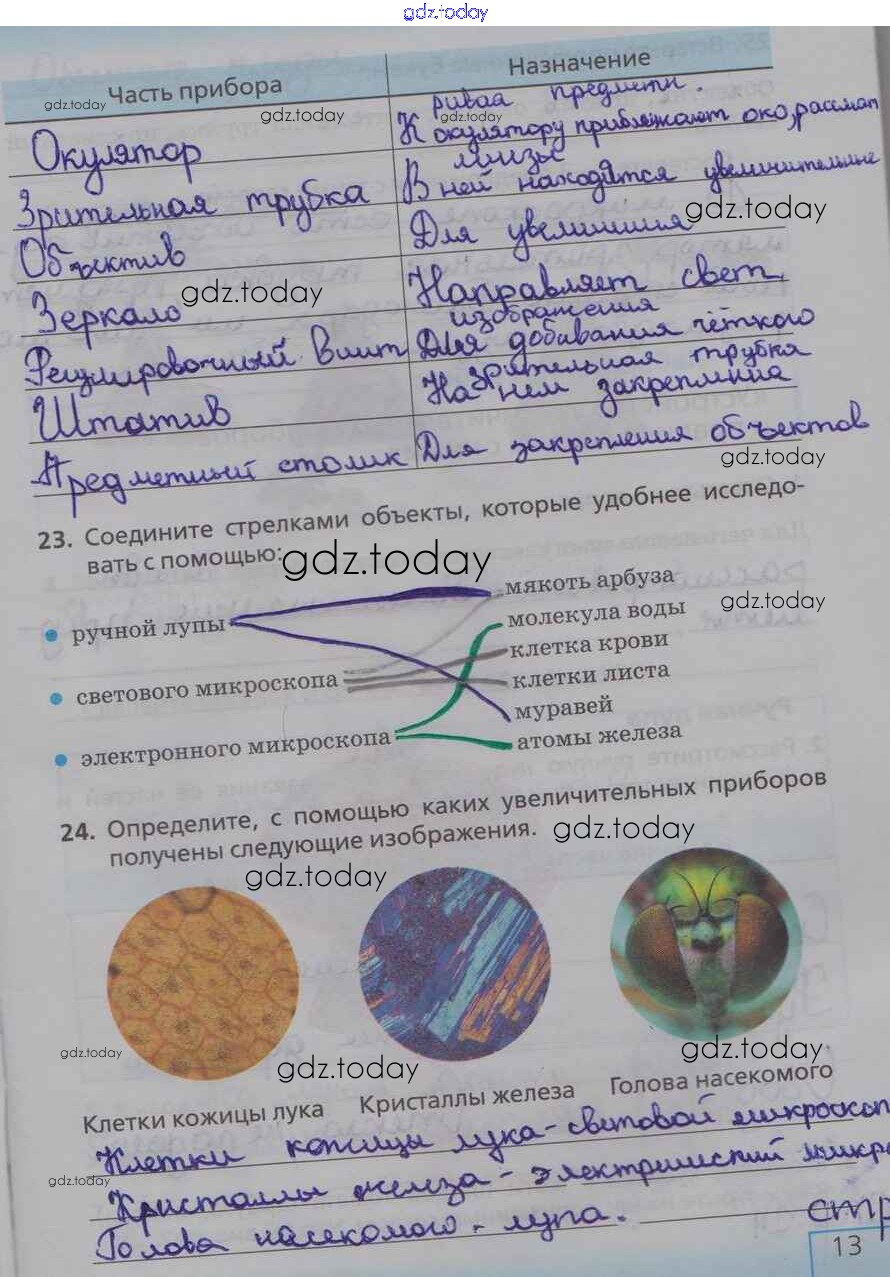 gdz.today
Часть прибора
Назначение
gdz.today
gdz.today
gdz.today
Окулятор
К окулятору приближают око, рассмат
ривая предмети.
Зрительная трубка
В ней находятся увеличительные
линзы
gdz.today
Объектив
Для увеличения
gdz.today
Зеркало
Направляет свет
Регулировочный винт
Для добивания чёткого
изображения
Штатив
На нем закреплина
зрительная трубка
Предметный столик
Для закрепления объектов
gdz.today
23. Соедините стрелками объекты, которые удобнее исследо-
вать с помощью:
gdz.today
ручной лупы
светового микроскопа
электронного микроскопа
мякоть арбуза
gdz.today
молекула воды
клетка крови
клетки листа
муравей
атомы железа
24. Определите, с помощью каких увеличительных приборов
получены следующие изображения.
gdz.today
gdz.today
gdz.today
gdz.today
gdz.today
Клетки кожицы лука
Кристаллы железа
Голова насекомого
Клетки кожицы лука - световой микроскоп
gdz.today
Кристаллы железа - микро
Голова насекомого - лупа.
стр
13